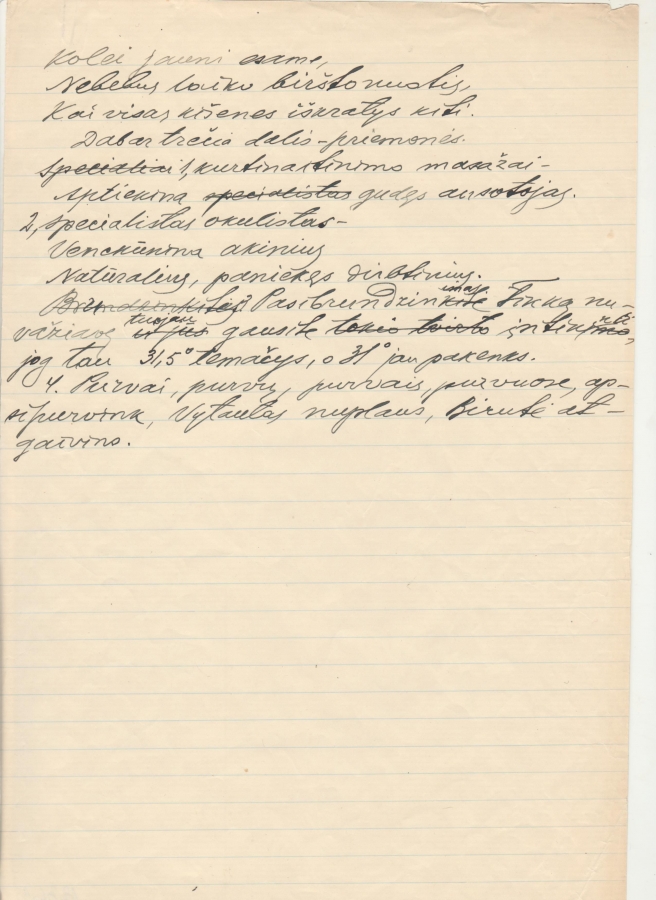 Kolei jauni esame,
Nebebus laiko birštonuotis,
Kai visas kišenes iškratys kiti.
Dabar trečia dalis - priemonės.
specialiai 1, kurtinaitinimo masažai -
Aptiekina specialistas gudęs ausotojas.
2, specialistas okulistas -
Venckūnina akinius
Natūralius, paniekęs dirbtinius.
Pasibrundzin Finką nu-
važiavę tuojau gausite tokio tvirto
jog tau 31,5° temačys, o 31° jau pakenks.
4. Purvai, purvų, purvais, purvuose, ap-
sipurvink, Vytautas nuplaus, Birutė at-
gaivins.